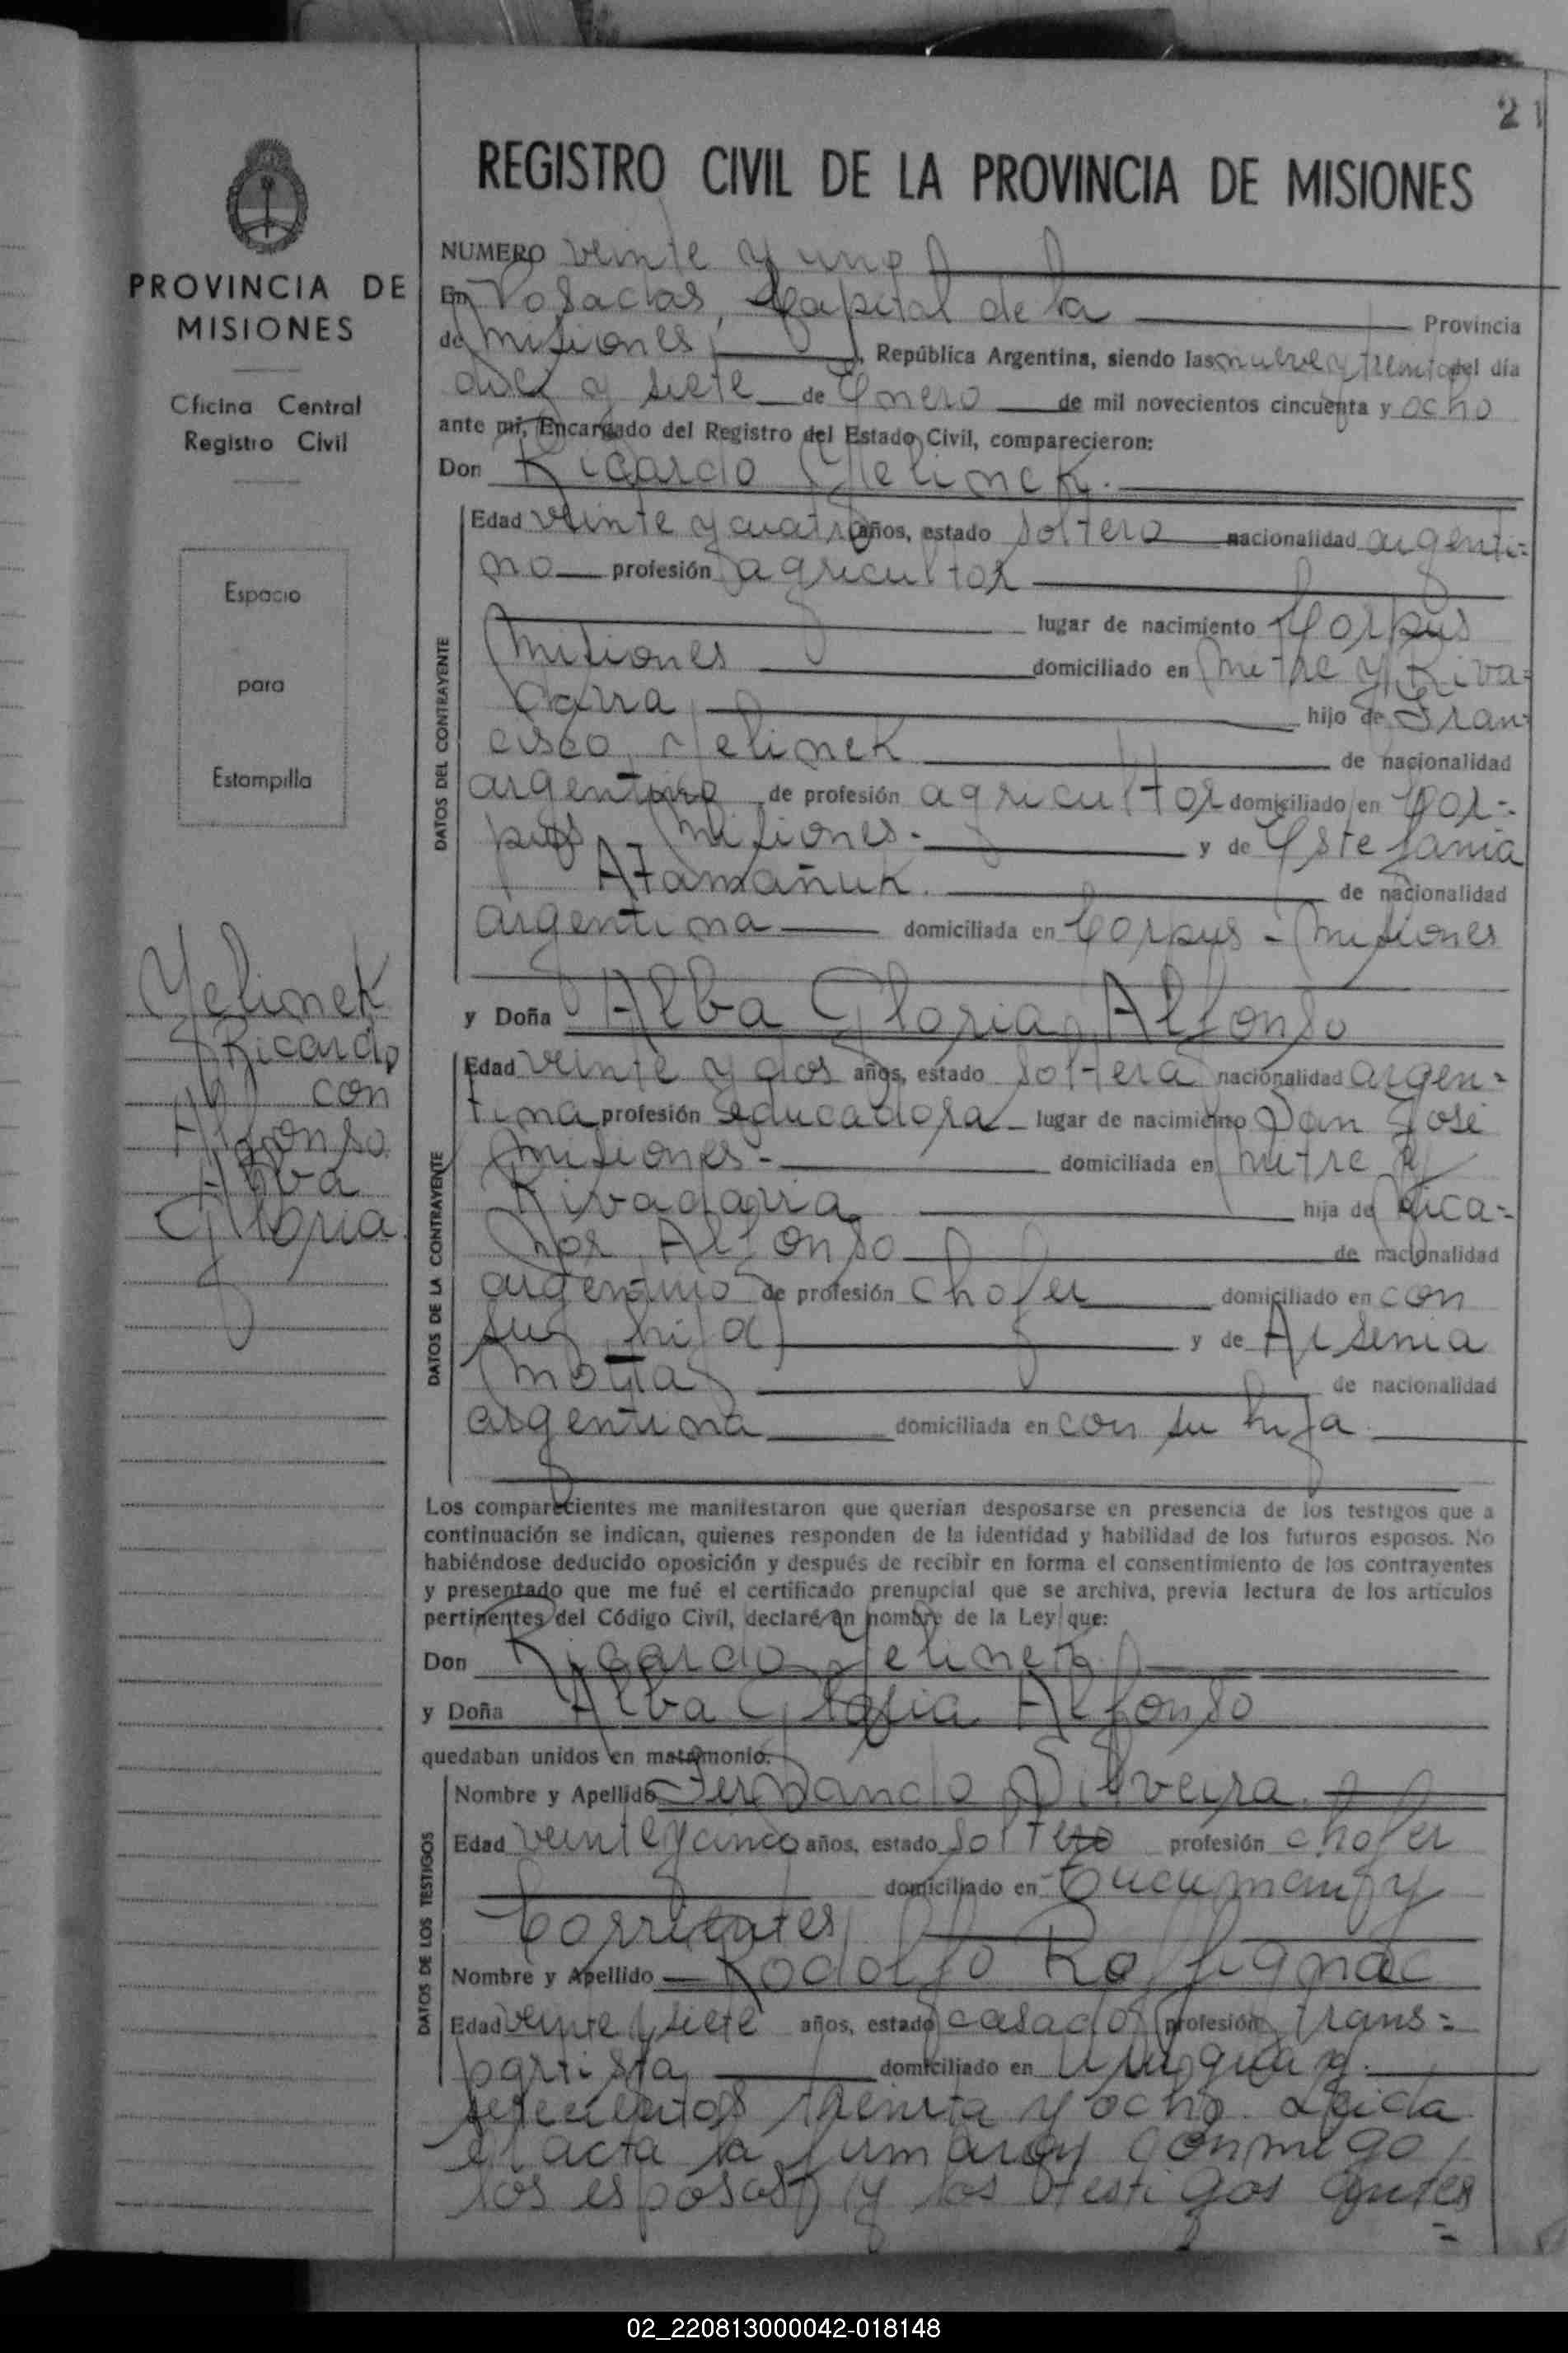 21
REGISTRO CIVIL DE LA PROVINCIA DE MISIONES
PROVINCIA DE
MISIONES
Oficina Central
Registro Civil
Espacio
para
Estampilla
Yelinek
Ricardo
con
Alfonso
Alba
Gloria
NUMERO veinte y uno
En Posadas, Capital de la Provincia
de Misiones, República Argentina, siendo las nueve y treinta del día
diez y siete de Enero de mil novecientos cincuenta y ocho
ante mi, Encargado del Registro del Estado Civil, comparecieron:
Don Ricardo Yelinek.
DATOS DEL CONTRAYENTE
Edad veinte y cuatro años, estado soltero nacionalidad argenti=
no profesión agricultor
lugar de nacimiento Corpus
Misiones domiciliado en Mitre y Riva=
davia hijo de Fran=
cisco Yelinek de nacionalidad
argentino de profesión agricultor domiciliado en Cor=
pus - Misiones.- y de Estefania
Atamañuk. de nacionalidad
argentina domiciliada en Corpus - Misiones
y Doña Alba Gloria Alfonso
DATOS DE LA CONTRAYENTE
Edad veinte y dos años, estado soltera nacionalidad argen=
tina profesión educadora lugar de nacimiento San José
Misiones.- domiciliada en Mitre y
Rivadavia hija de Nica=
nor Alfonso de nacionalidad
argentino de profesión chofer domiciliado en con
su hija y de Arsenia
Motta de nacionalidad
argentina domiciliada en con su hija.
Los comparecientes me manifestaron que querían desposarse en presencia de los testigos que a
continuación se indican, quienes responden de la identidad y habilidad de los futuros esposos. No
habiéndose deducido oposición y después de recibir en forma el consentimiento de los contrayentes
y presentado que me fué el certificado prenupcial que se archiva, previa lectura de los artículos
pertinentes del Código Civil, declaré en nombre de la Ley que:
Don Ricardo Yelinek
y Doña Alba Gloria Alfonso
quedaban unidos en matrimonio.
DATOS DE LOS TESTIGOS
Nombre y Apellido Fernando Silveira.
Edad veinte y cinco años, estado soltero profesión chofer
domiciliado en Tucuman y
Corrientes
Nombre y Apellido Rodolfo Roffignac
Edad veinte y siete años, estado casado profesión trans=
portista domiciliado en Uruguay.
setecientos treinta y ocho. Leida
el acta la firmaron conmigo,
los esposos y los testigos antes
=
02_220813000042-018148